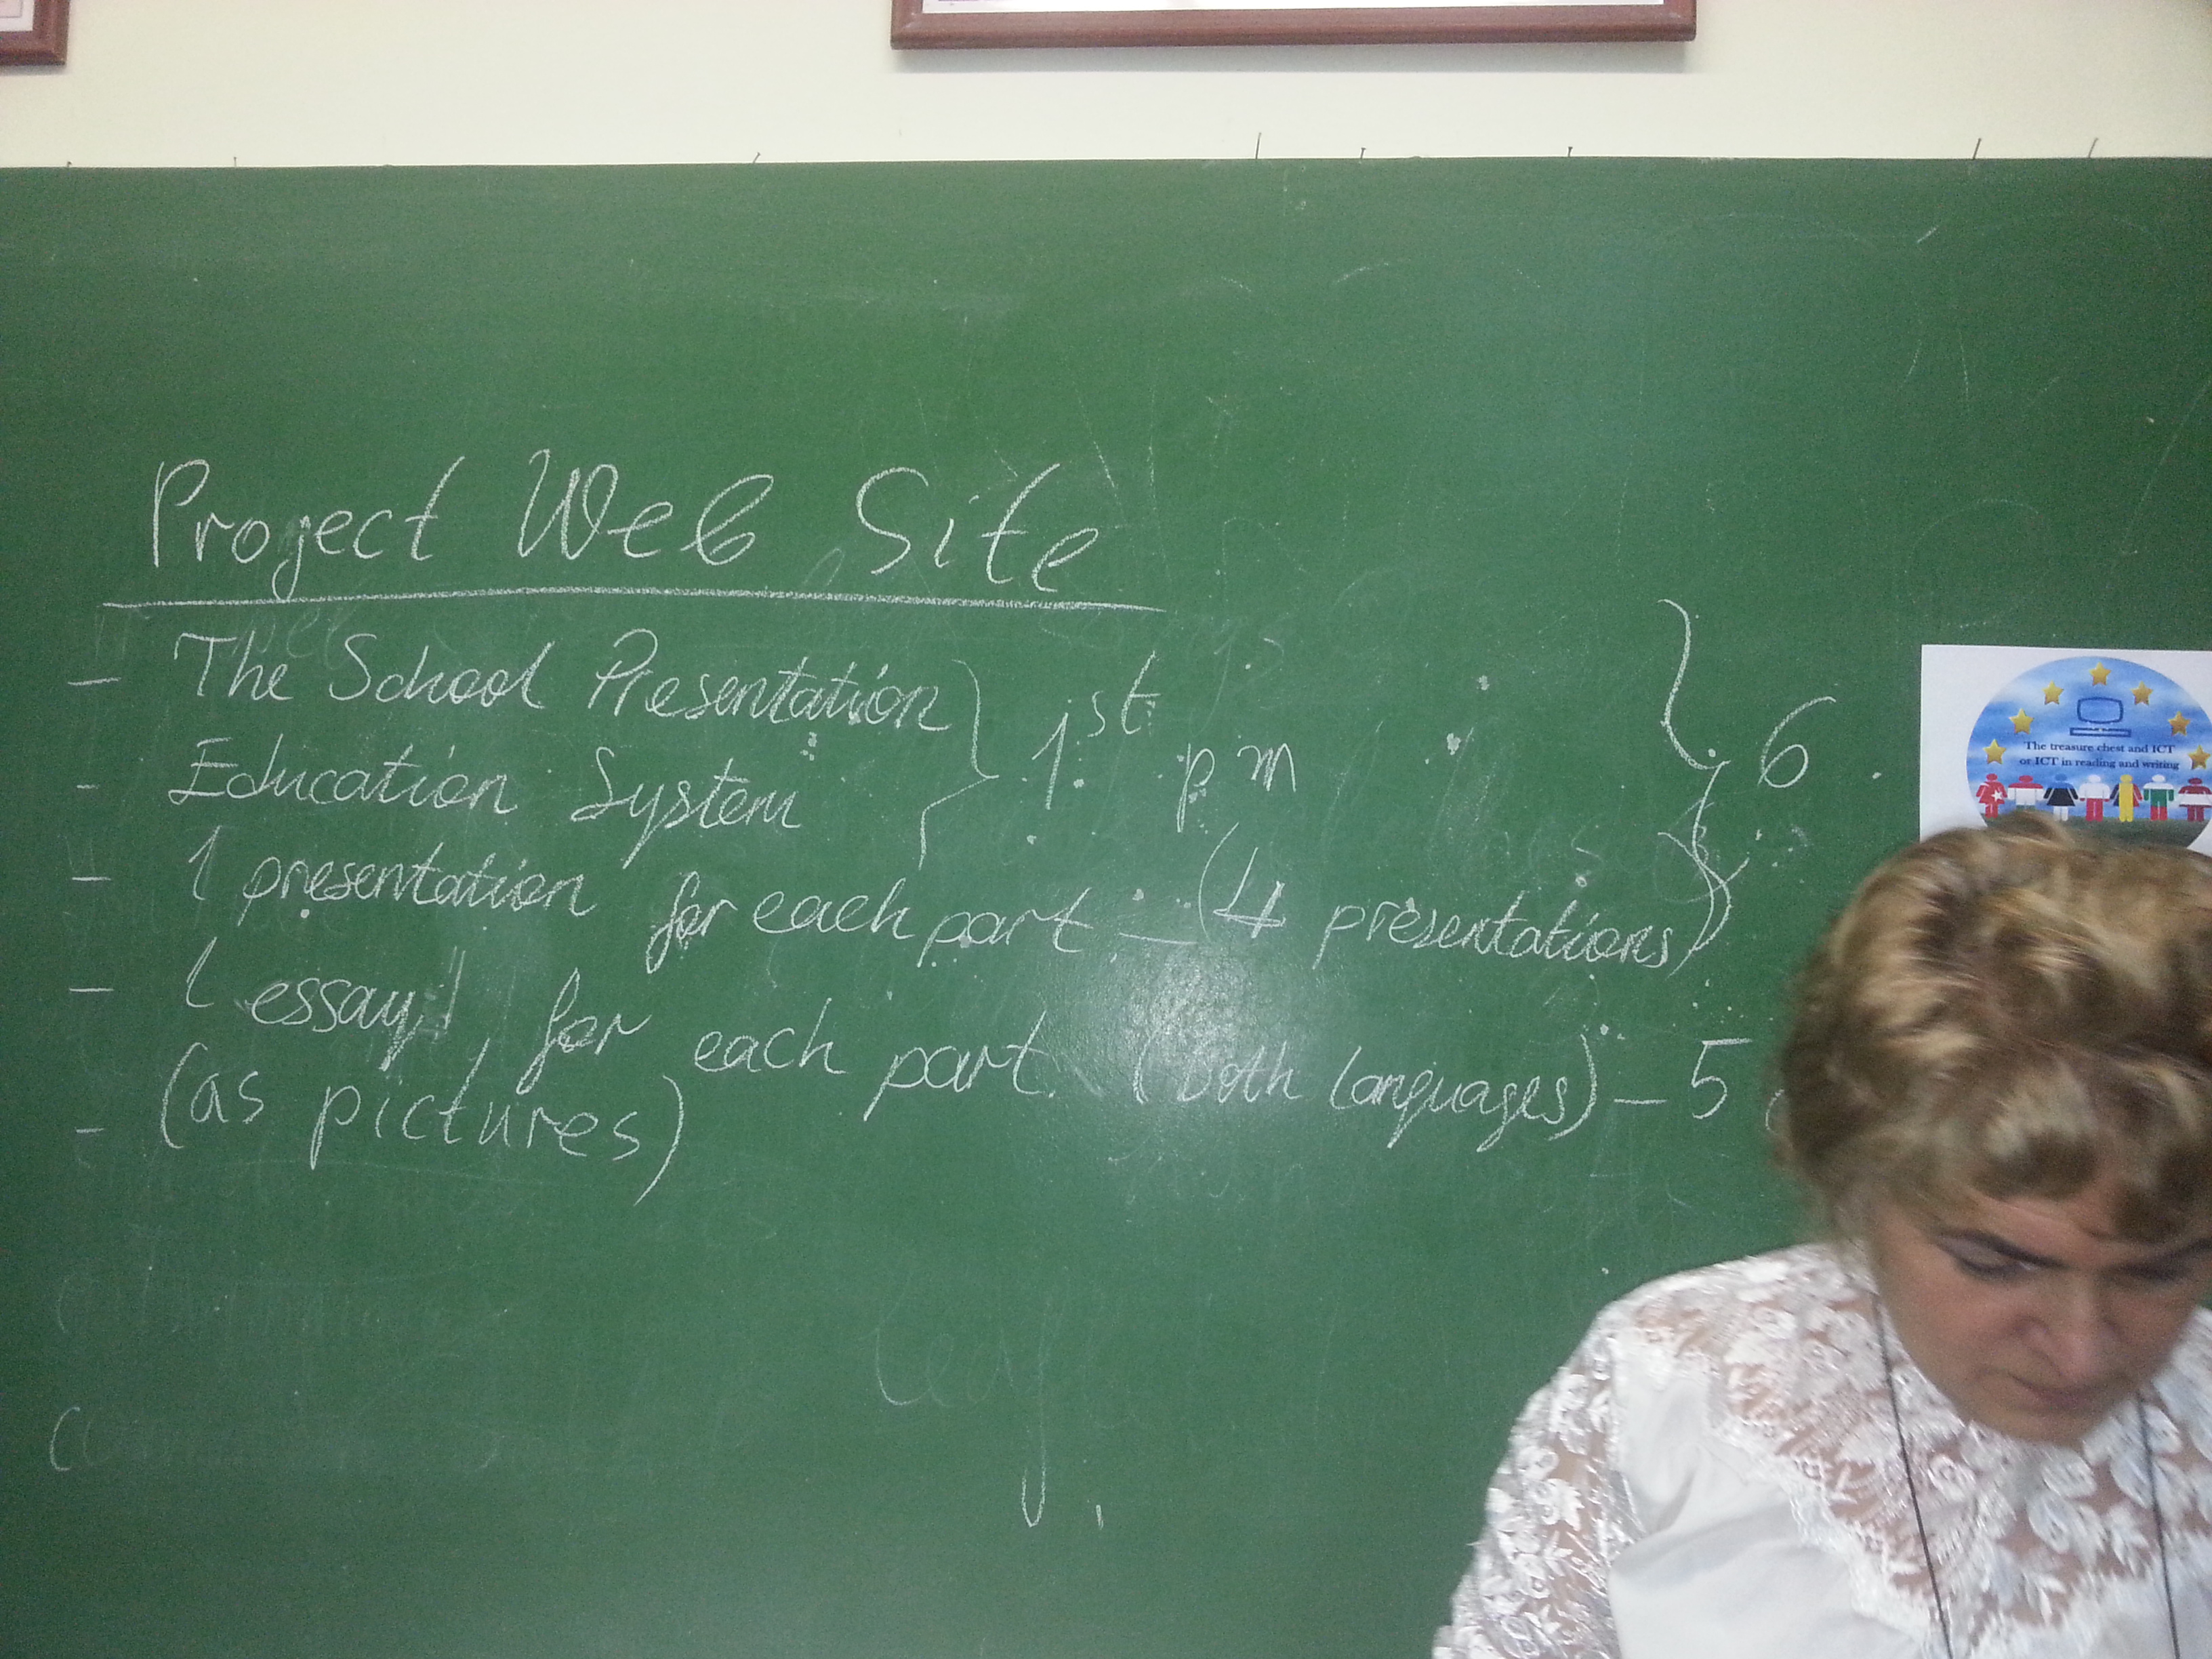 Project Web Site
- The School Presentation } 1st pm } 6
- Education System
- 1 presentation for each part - (4 presentations)
- 1 essay for each part. (both languages) - 5
- (as pictures)
The treasure chest and ICT
or ICT in reading and writing